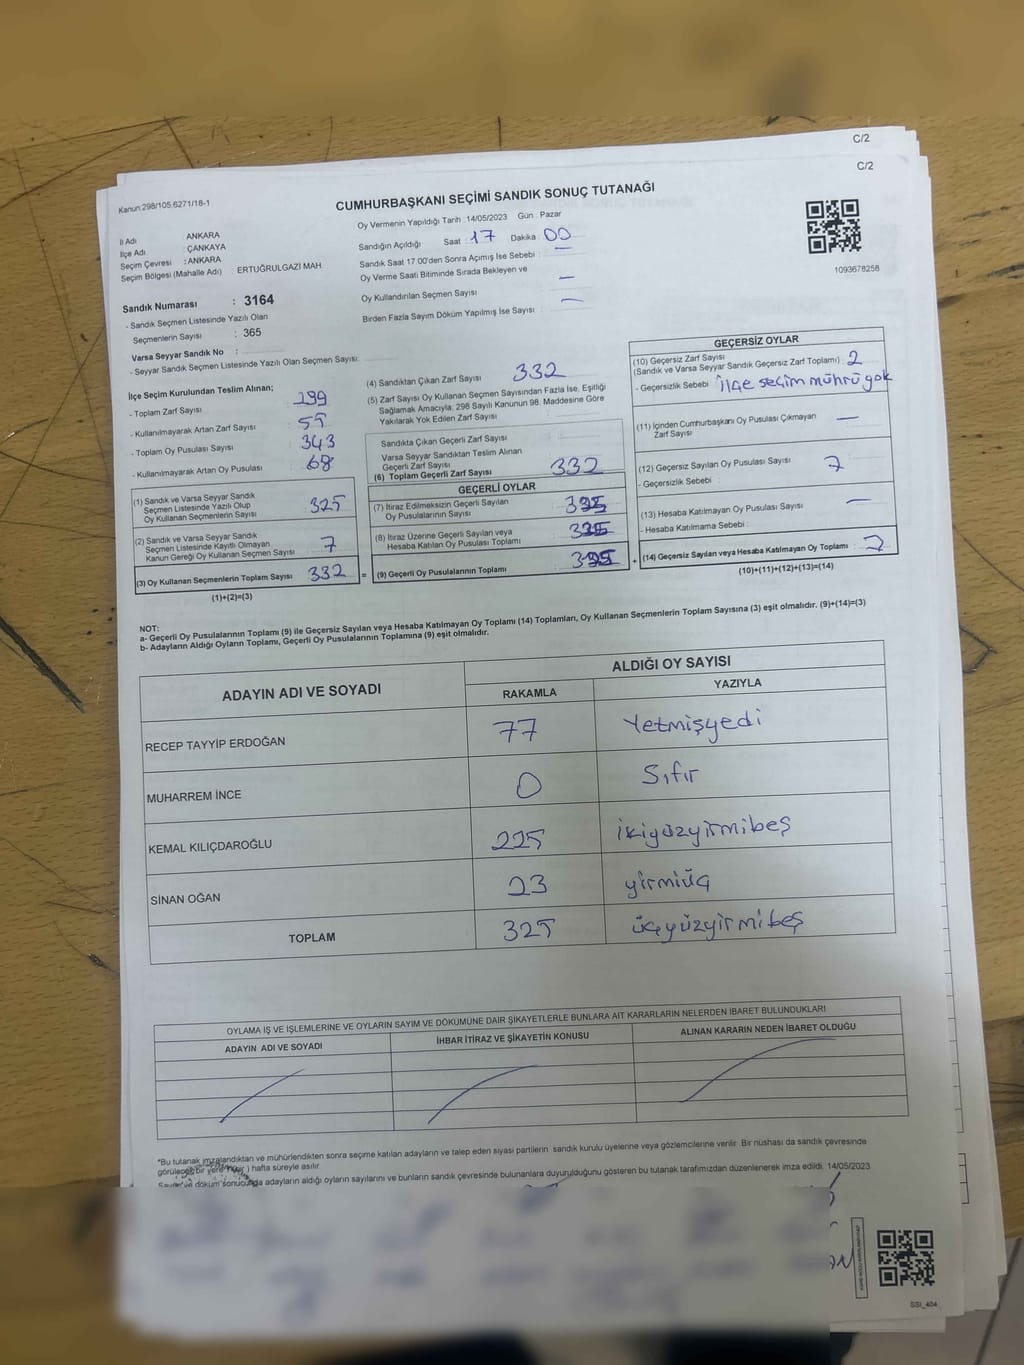 C/2
C/2
Kanun:298/105.6271/18-1
CUMHURBAŞKANI SEÇİMİ SANDIK SONUÇ TUTANAĞI
İl Adı ANKARA
İlçe Adı : ÇANKAYA
Seçim Çevresi : ANKARA
Seçim Bölgesi (Mahalle Adı) : ERTUĞRULGAZİ MAH.
Oy Vermenin Yapıldığı Tarih :14/05/2023 Gün : Pazar
Sandığın Açıldığı Saat : 17 Dakika : 00
Sandık Saat 17:00'den Sonra Açılmış İse Sebebi : —
Oy Verme Saati Bitiminde Sırada Bekleyen ve
Oy Kullandırılan Seçmen Sayısı —
Birden Fazla Sayım Döküm Yapılmış İse Sayısı : —
1093678258
Sandık Numarası : 3164
- Sandık Seçmen Listesinde Yazılı Olan
Seçmenlerin Sayısı : 365
Varsa Seyyar Sandık No :
- Seyyar Sandık Seçmen Listesinde Yazılı Olan Seçmen Sayısı:
İlçe Seçim Kurulundan Teslim Alınan;
- Toplam Zarf Sayısı
- Kullanılmayarak Artan Zarf Sayısı :
- Toplam Oy Pusulası Sayısı : 343
- Kullanılmayarak Artan Oy Pusulası : 68
(1) Sandık ve Varsa Seyyar Sandık
Seçmen Listesinde Yazılı Olup
Oy Kullanan Seçmenlerin Sayısı : 325
(2) Sandık ve Varsa Seyyar Sandık
Seçmen Listesinde Kayıtlı Olmayan
Kanun Gereği Oy Kullanan Seçmen Sayısı : 7
(3) Oy Kullanan Seçmenlerin Toplam Sayısı : 332 =
(1)+(2)=(3)
(4) Sandıktan Çıkan Zarf Sayısı : 332
(5) Zarf Sayısı Oy Kullanan Seçmen Sayısından Fazla İse, Eşitliği
Sağlamak Amacıyla; 298 Sayılı Kanunun 98. Maddesine Göre
Yakılarak Yok Edilen Zarf Sayısı
Sandıkta Çıkan Geçerli Zarf Sayısı
Varsa Seyyar Sandıktan Teslim Alınan
Geçerli Zarf Sayısı
(6) Toplam Geçerli Zarf Sayısı : 332
GEÇERLİ OYLAR
(7) İtiraz Edilmeksizin Geçerli Sayılan
Oy Pusulalarının Sayısı :
(8) İtiraz Üzerine Geçerli Sayılan veya
Hesaba Katılan Oy Pusulası Toplamı :
(9) Geçerli Oy Pusulalarının Toplamı : +
GEÇERSİZ OYLAR
(10) Geçersiz Zarf Sayısı
(Sandık ve Varsa Seyyar Sandık Geçersiz Zarf Toplamı) : 2
- Geçersizlik Sebebi : İlçe seçim mührü yok
(11) İçinden Cumhurbaşkanı Oy Pusulası Çıkmayan
Zarf Sayısı —
(12) Geçersiz Sayılan Oy Pusulası Sayısı : 7
- Geçersizlik Sebebi :
(13) Hesaba Katılmayan Oy Pusulası Sayısı —
- Hesaba Katılmama Sebebi :
(14) Geçersiz Sayılan veya Hesaba Katılmayan Oy Toplamı :
(10)+(11)+(12)+(13)=(14)
NOT:
a- Geçerli Oy Pusulalarının Toplamı (9) ile Geçersiz Sayılan veya Hesaba Katılmayan Oy Toplamı (14) Toplamları, Oy Kullanan Seçmenlerin Toplam Sayısına (3) eşit olmalıdır. (9)+(14)=(3)
b- Adayların Aldığı Oyların Toplamı, Geçerli Oy Pusulalarının Toplamına (9) eşit olmalıdır.
ADAYIN ADI VE SOYADI ALDIĞI OY SAYISI
RAKAMLA YAZIYLA
RECEP TAYYİP ERDOĞAN 77 Yetmişyedi
MUHARREM İNCE 0 Sıfır
KEMAL KILIÇDAROĞLU 225 ikiyüzyirmibeş
SİNAN OĞAN 23 yirmiüç
TOPLAM 325 üçyüzyirmibeş
OYLAMA İŞ VE İŞLEMLERİNE VE OYLARIN SAYIM VE DÖKÜMÜNE DAİR ŞİKAYETLERLE BUNLARA AİT KARARLARIN NELERDEN İBARET BULUNDUKLARI
ADAYIN ADI VE SOYADI İHBAR İTİRAZ VE ŞİKAYETİN KONUSU ALINAN KARARIN NEDEN İBARET OLDUĞU
*Bu tutanak imzalandıktan ve mühürlendikten sonra seçime katılan adayların ve talep eden siyasi partilerin sandık kurulu üyelerine veya gözlemcilerine verilir. Bir nüshası da sandık çevresinde
görülecek bir yere hafta süreyle asılır.
Sayım ve döküm sonucunda adayların aldığı oyların sayılarını ve bunların sandık çevresinde bulunanlara duyurulduğunu gösteren bu tutanak tarafımızdan düzenlenerek imza edildi. 14/05/2023
SSI_404